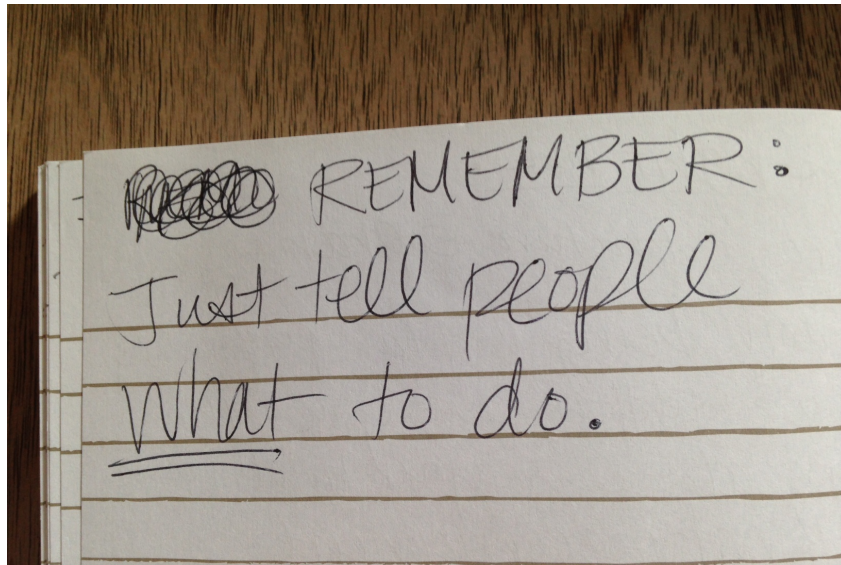 REMEMBER:
Just tell people
what to do.